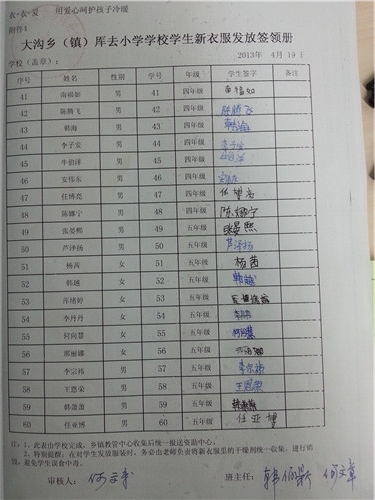 衣·衣·爱 用爱心呵护孩子冷暖
附件4
大沟乡（镇）厍去小学学校学生新衣服发放签领册
学校（盖章）： 2013年 4月 19日
序号 姓名 性别 序号 年级 学生签字 备注
41 南福如 男 41 四年级 南福如
42 陈腾飞 男 42 四年级 陈腾飞
43 韩海 男 43 四年级 韩海
44 李子安 男 44 四年级 李子安
45 牛伯泽 男 45 四年级
46 安伟东 男 46 四年级
47 任博亮 男 47 四年级 任博亮
48 陈娜宁 男 48 四年级 陈娜宁
49 张晏熙 男 49 五年级 张晏熙
50 芦泽扬 男 50 五年级 芦泽扬
51 杨茜 女 51 五年级 杨茜
52 韩越 女 52 五年级 韩越
53 厍绪婷 女 53 五年级
54 李丹丹 女 54 五年级
55 何向慧 女 55 五年级 何向慧
56 邢丽娜 女 56 五年级
57 李宗祎 男 57 五年级 李宗祎
58 王恩荣 男 58 五年级 王恩荣
59 韩萧萧 男 59 五年级 韩萧萧
60 任亚博 男 60 五年级 任亚博
注：1、此表由学校完成，乡镇教管中心收集后统一报送资助中心。
2、特别提醒，在对学生发放服装时，务必由老师负责将新衣服里的干燥剂统一收集，进行销
毁，避免学生误食中毒。
审核人： 班主任：